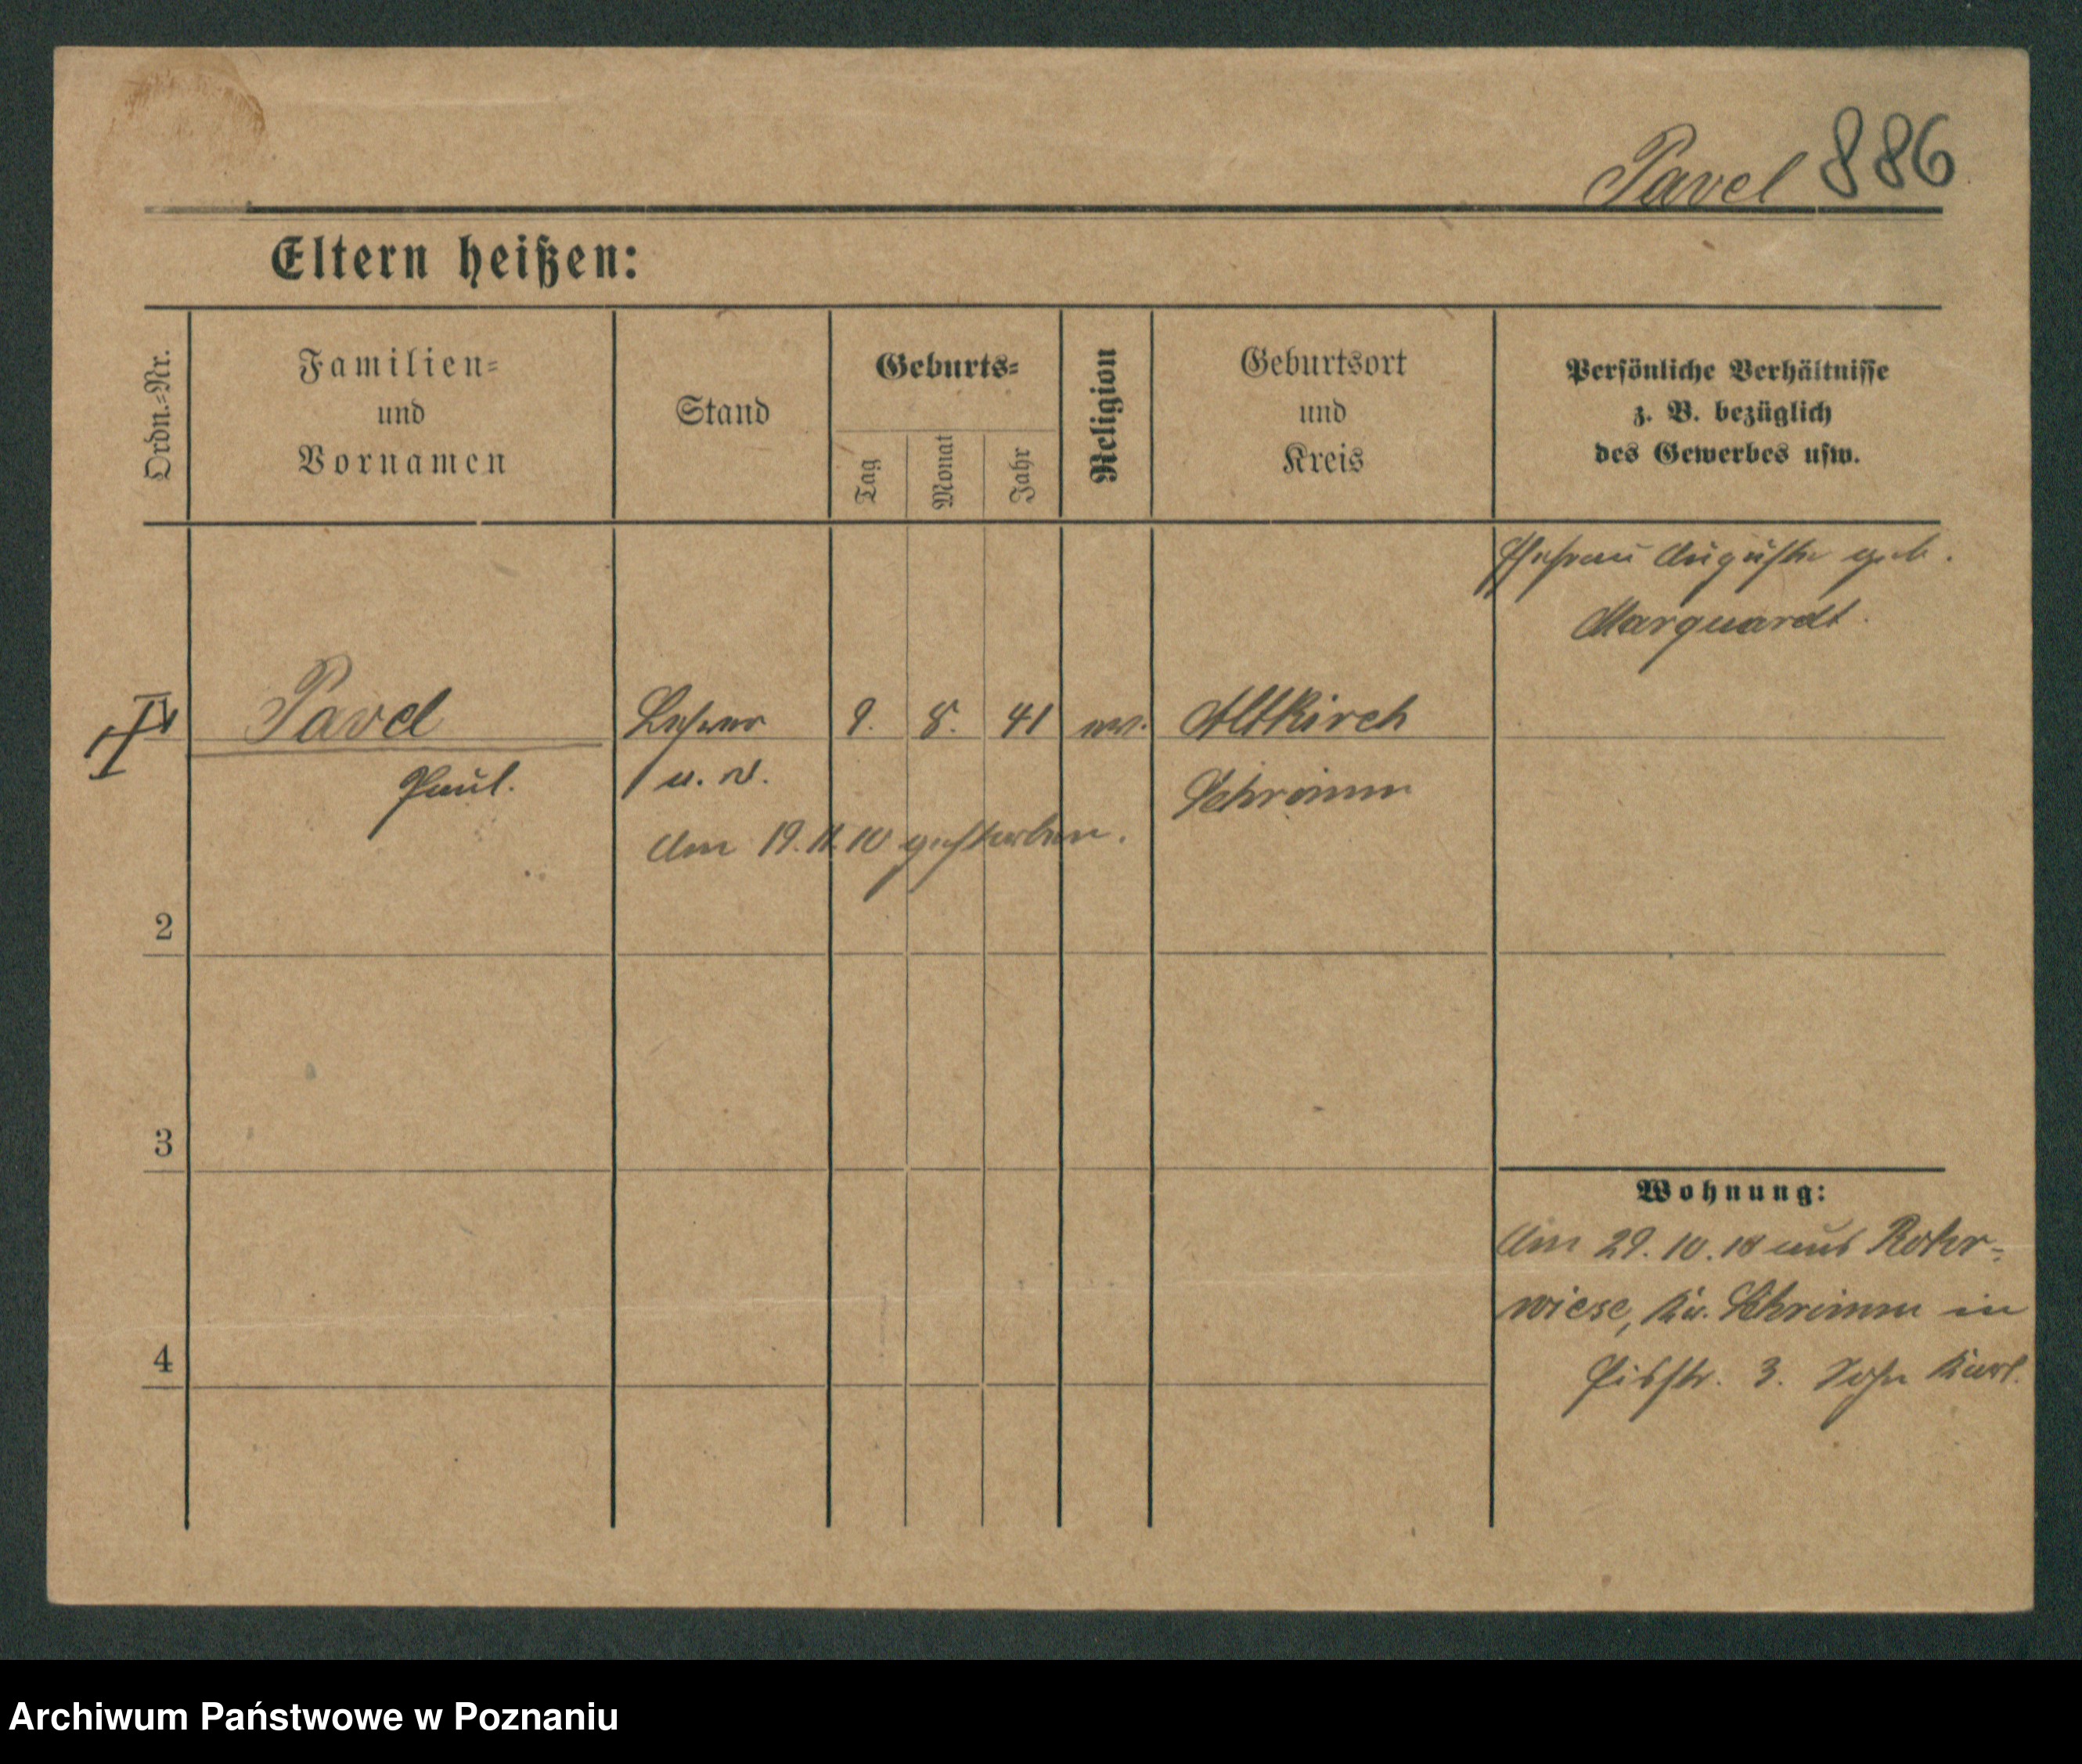 Pavel 886
Eltern heißen:
Ordn.-Nr.
Familien-
und
Vornamen
Stand
Geburts-
Tag
Monat
Jahr
Religion
Geburtsort
und
Kreis
Persönliche Verhältnisse
z. B. bezüglich
des Gewerbes usw.
Ehefrau Auguste geb.
Marquardt.
Pavel Lehrer 9. 8. 41 ev. Altkirch
Paul. a. D. Schrimm
Am 19.11.10 gestorben.
2
3
4
Wohnung:
Am 29.10. aus Rohr-
wiese, Kr. Schrimm in
3. Sohn Karl.
Archiwum Państwowe w Poznaniu